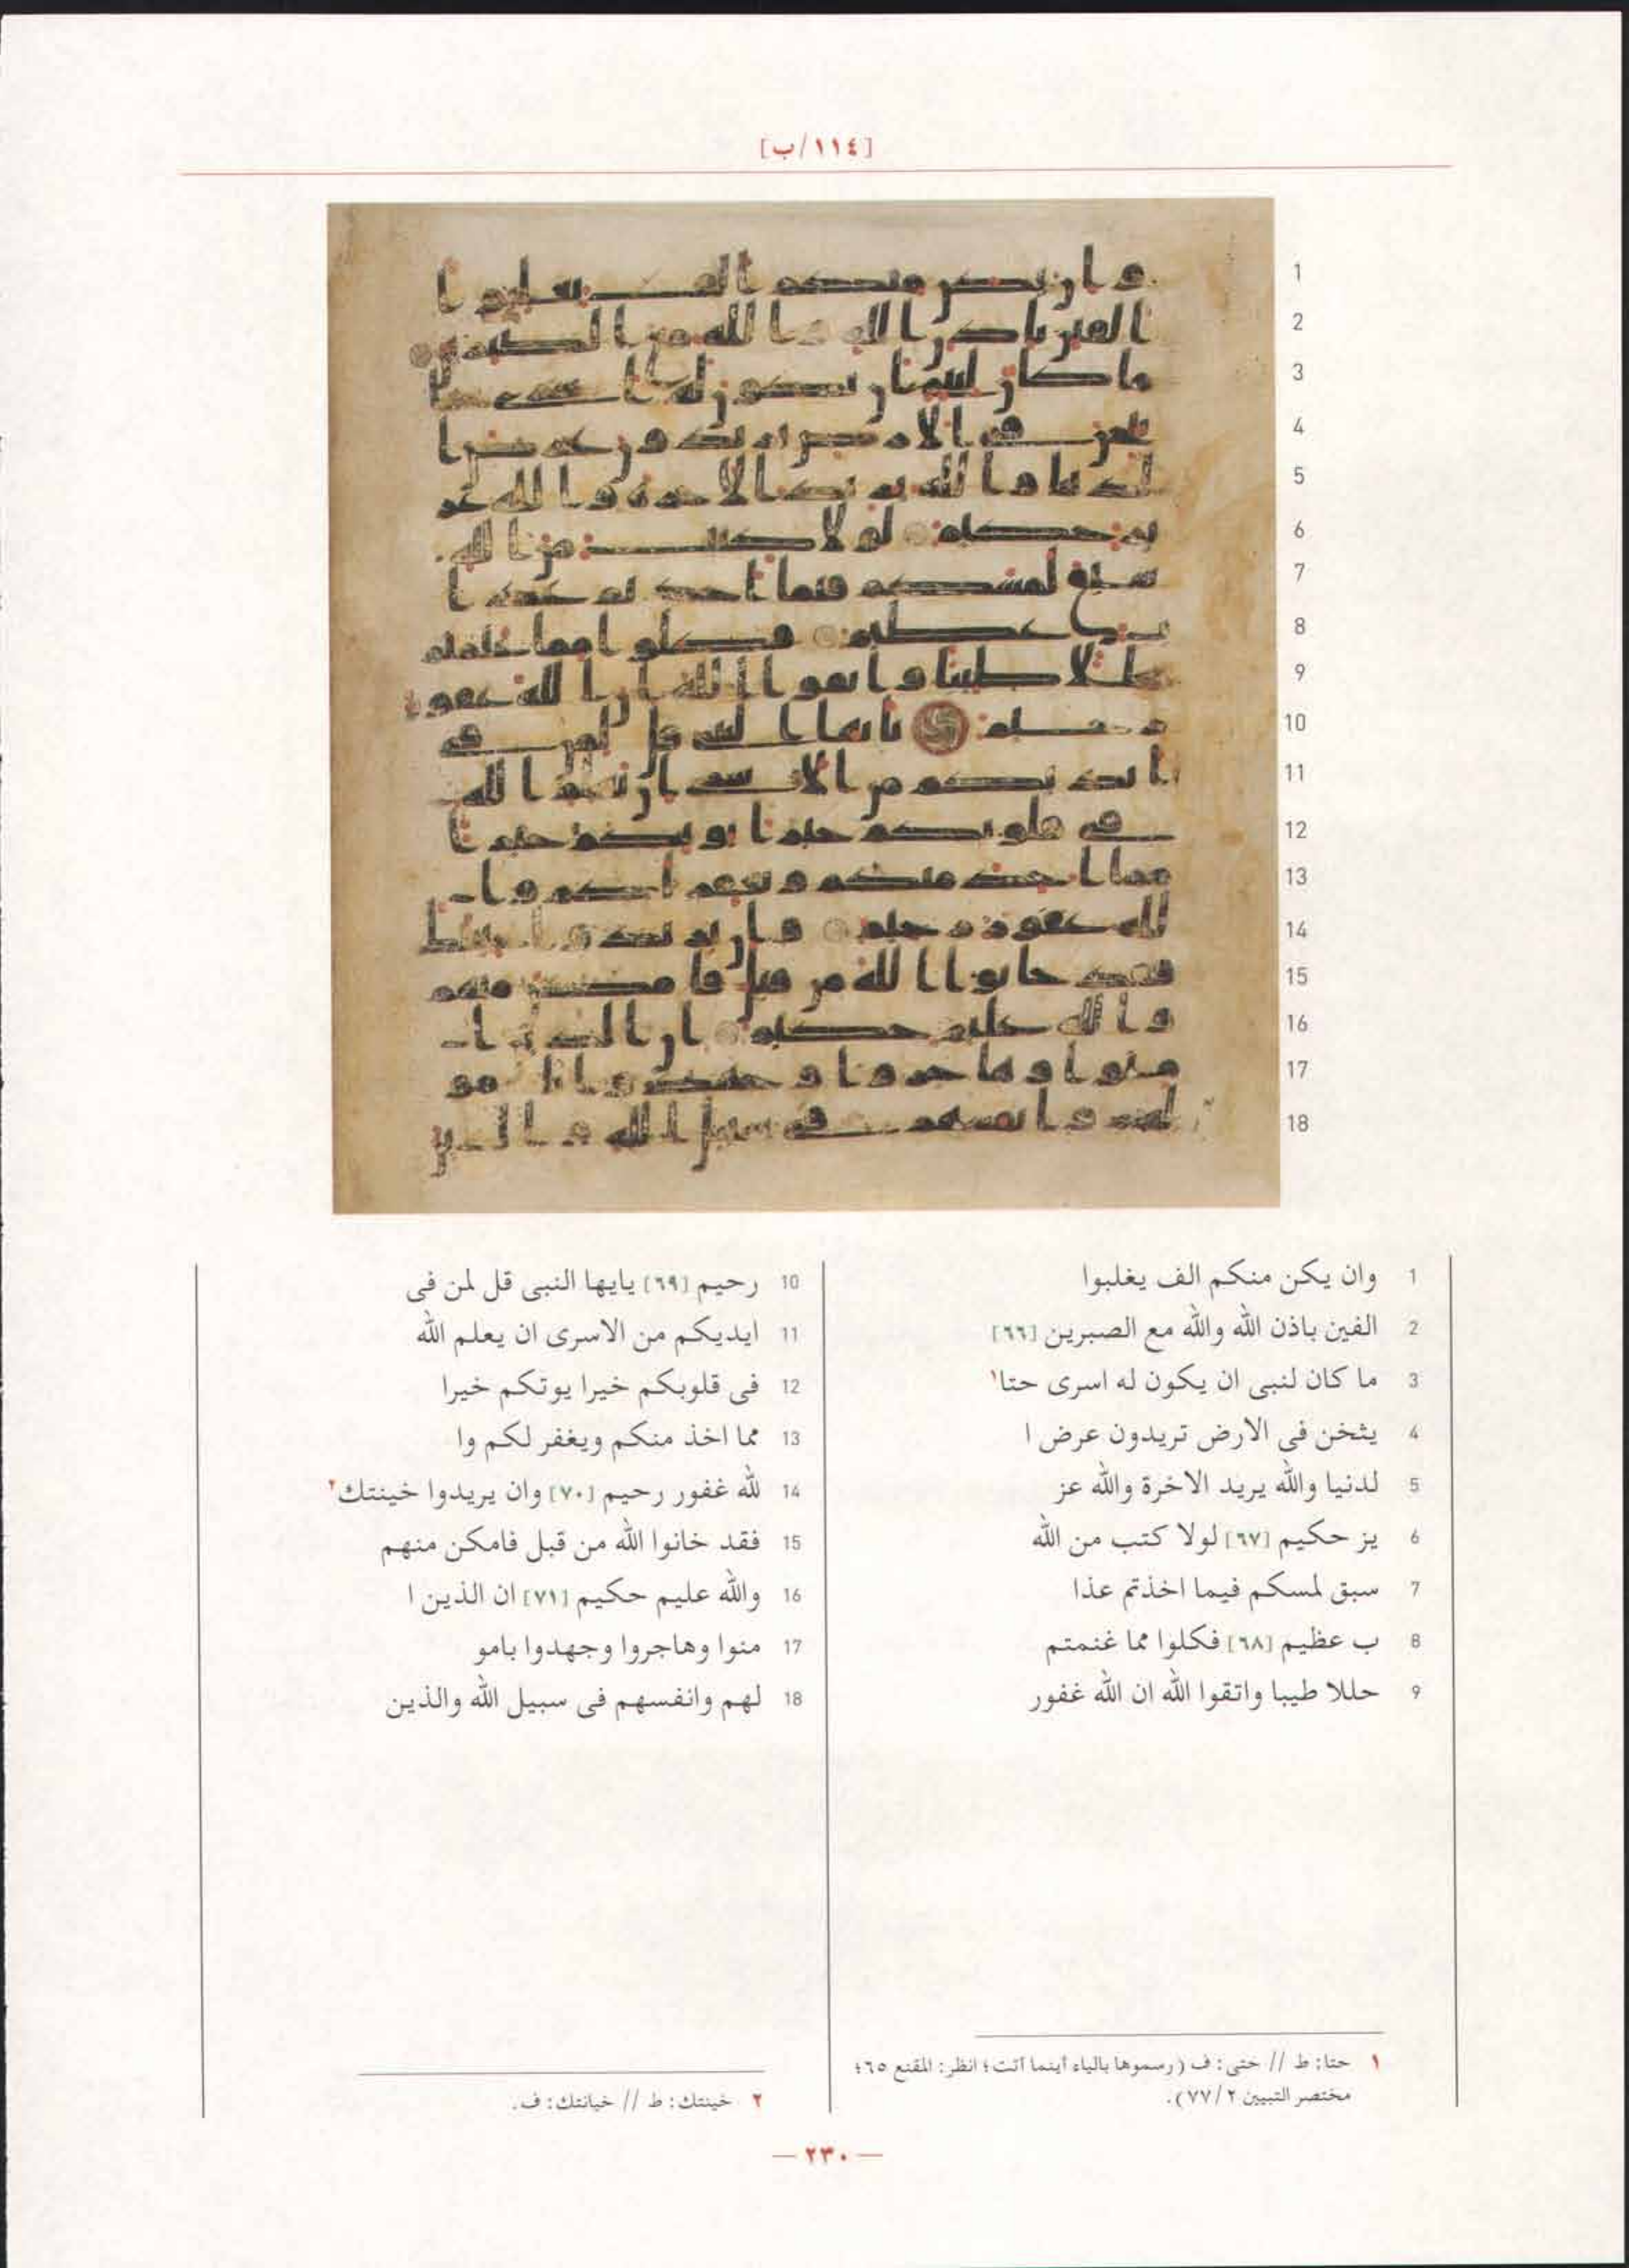 [١١٤/ب]
1 وان يكن منكم الف يغلبوا
2 الفين باذن الله والله مع الصبرين [٦٦]
3 ما كان لنبى ان يكون له اسرى حتا١
4 يثخن فى الارض تريدون عرض ا
5 لدنيا والله يريد الاخرة والله عز
6 يز حكيم [٦٧] لولا كتب من الله
7 سبق لمسكم فيما اخذتم عذا
8 ب عظيم [٦٨] فكلوا مما غنمتم
9 حللا طيبا واتقوا الله ان الله غفور
10 رحيم [٦٩] يايها النبى قل لمن فى
11 ايديكم من الاسرى ان يعلم الله
12 فى قلوبكم خيرا يوتكم خيرا
13 مما اخذ منكم ويغفر لكم وا
14 لله غفور رحيم [٧٠] وان يريدوا خينتك٢
15 فقد خانوا الله من قبل فامكن منهم
16 والله عليم حكيم [٧١] ان الذين ا
17 منوا وهاجروا وجهدوا بامو
18 لهم وانفسهم فى سبيل الله والذين
١ حتا: ط // حتى: ف (رسموها بالياء أينما أتت؛ انظر: المقنع ٦٥؛
مختصر التبيين ٢/٧٧).
٢ خينتك: ط // خيانتك: ف.
— ٢٣٠ —